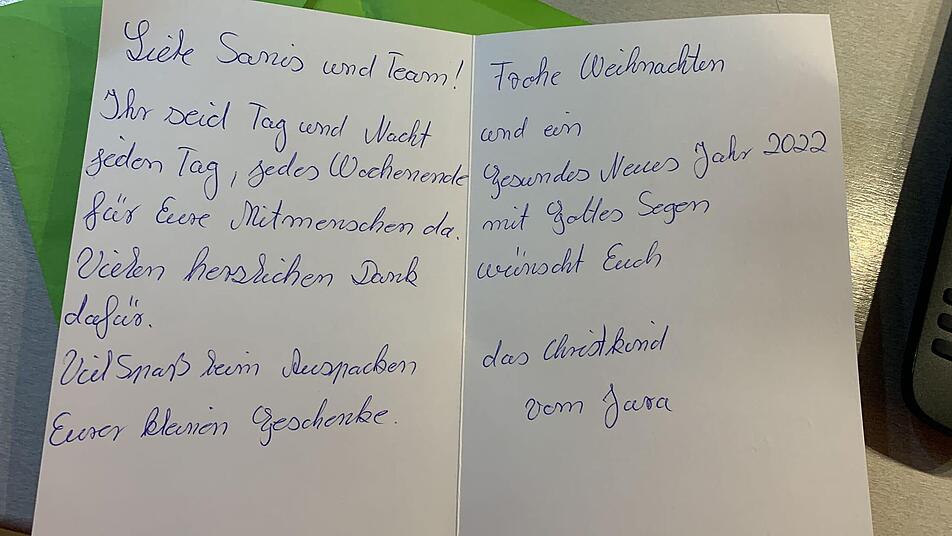 Liebe Sanis und Team!
Ihr seid Tag und Nacht
jeden Tag, jedes Wochenende
für Eure Mitmenschen da.
Vielen herzlichen Dank
dafür.
Viel Spaß beim Auspacken
Eurer kleinen Geschenke.
Frohe Weihnachten
und ein
gesundes Neues Jahr 2022
mit Gottes Segen
wünscht Euch
das Christkind
vom Jara